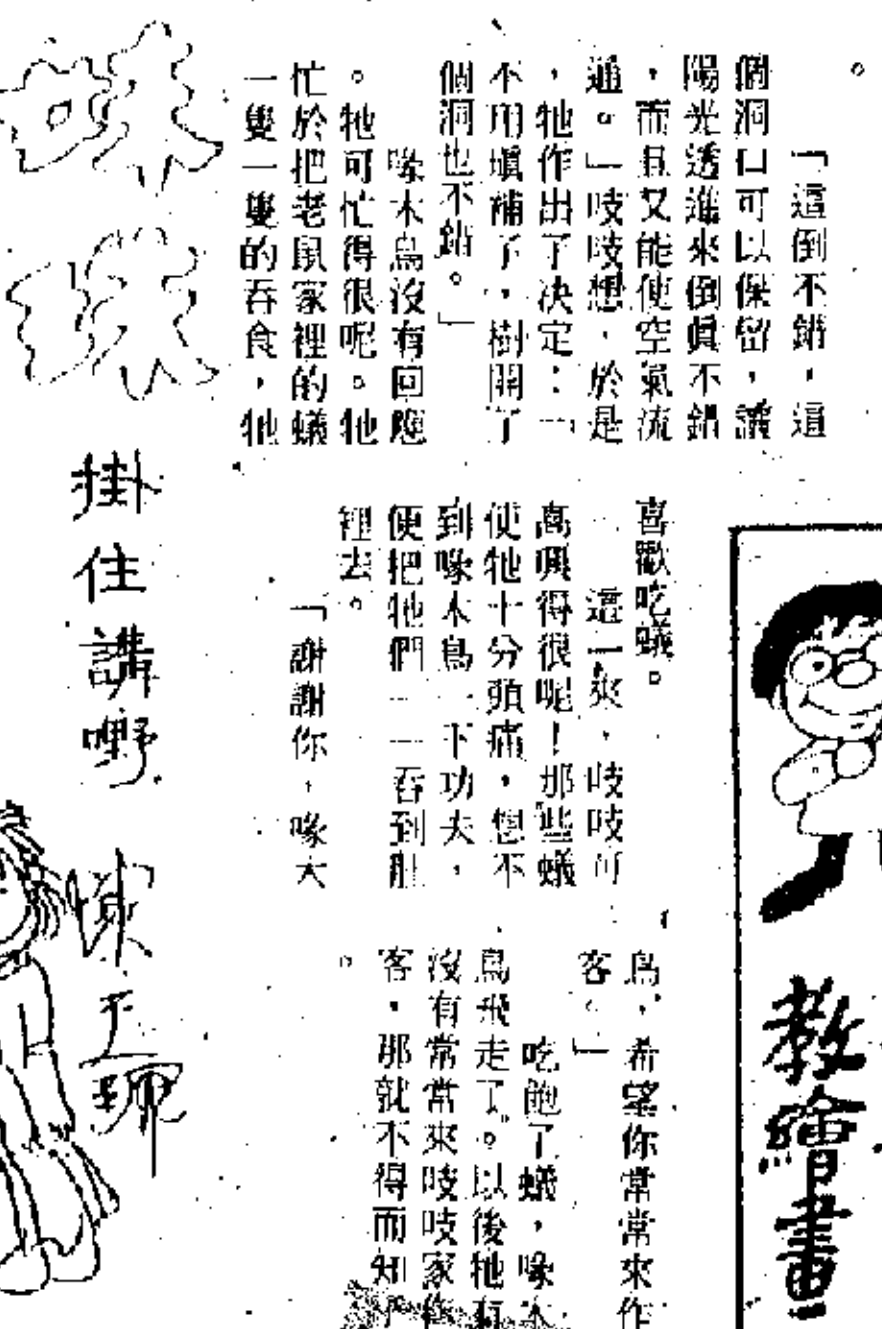 。
「這倒不錯，這
個洞口可以保留，讓
陽光透進來倒眞不錯
，而且又能使空氣流
通。」吱吱想，於是
，牠作出了决定：「
不用塡補了，樹開了
個洞也不錯。」
啄木鳥沒有回應
。牠可忙得很呢。牠
忙於把老鼠家裡的蟻
一隻一隻的吞食，牠
喜歡吃蟻。
這一來，吱吱可
高興得很呢！那些蟻
使牠十分頭痛，想不
到啄木鳥一下功夫，
便把牠們一一吞到肚
裡去。
「謝謝你，啄木
鳥，希望你常常來作
客。」
吃飽了蟻，啄木
鳥飛走了。以後牠有
沒有常常來吱吱家作
客，那就不得而知了
。
教繪畫
珠珠
掛住講嘢
陳玉珮